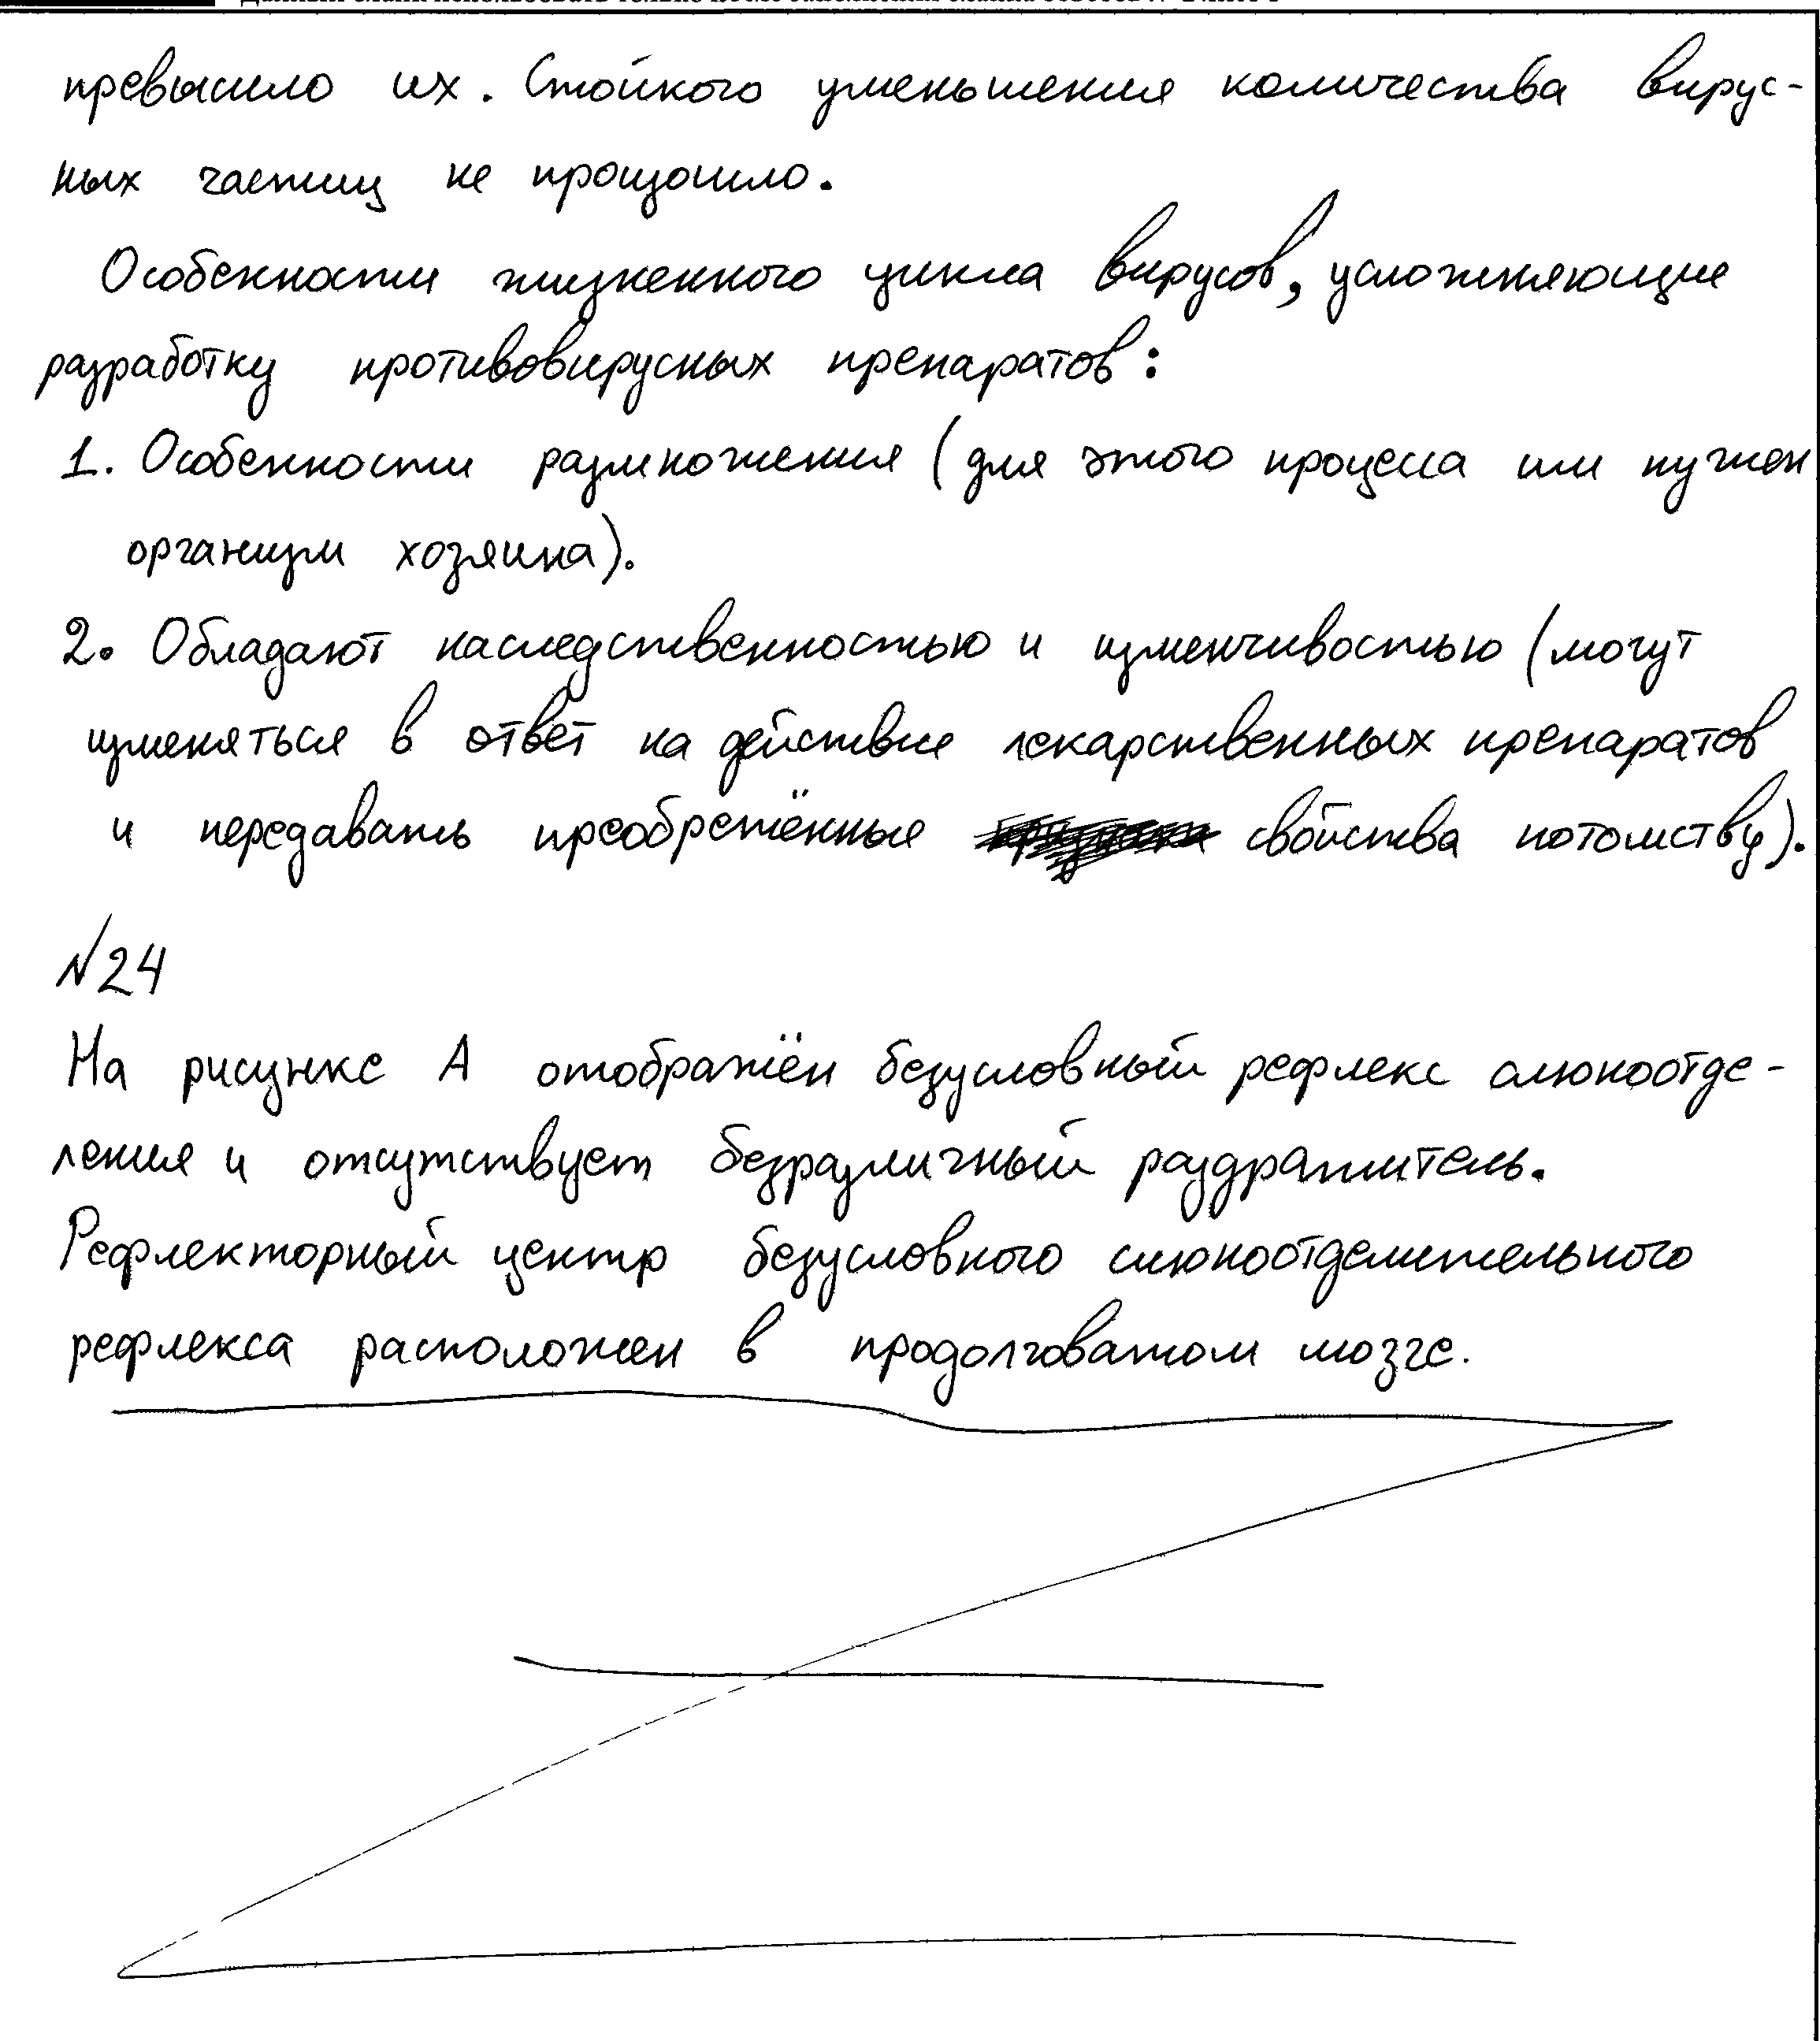 превысило их. Стойкого уменьшения количества вирус-
ных частиц не произошло.
Особенности жизненного цикла вирусов, усложняющие
разработку противовирусных препаратов:
1. Особенности размножения (для этого процесса им нужен
организм хозяина).
2. Обладают наследственностью и изменчивостью (могут
изменяться в ответ на действие лекарственных препаратов
и передавать преобретённые свойства потомству).
№24
На рисунке А отображён безусловный рефлекс слюноотде-
ления и отсутствует безразличный раздражитель.
Рефлекторный центр безусловного слюноотделительного
рефлекса расположен в продолговатом мозге.